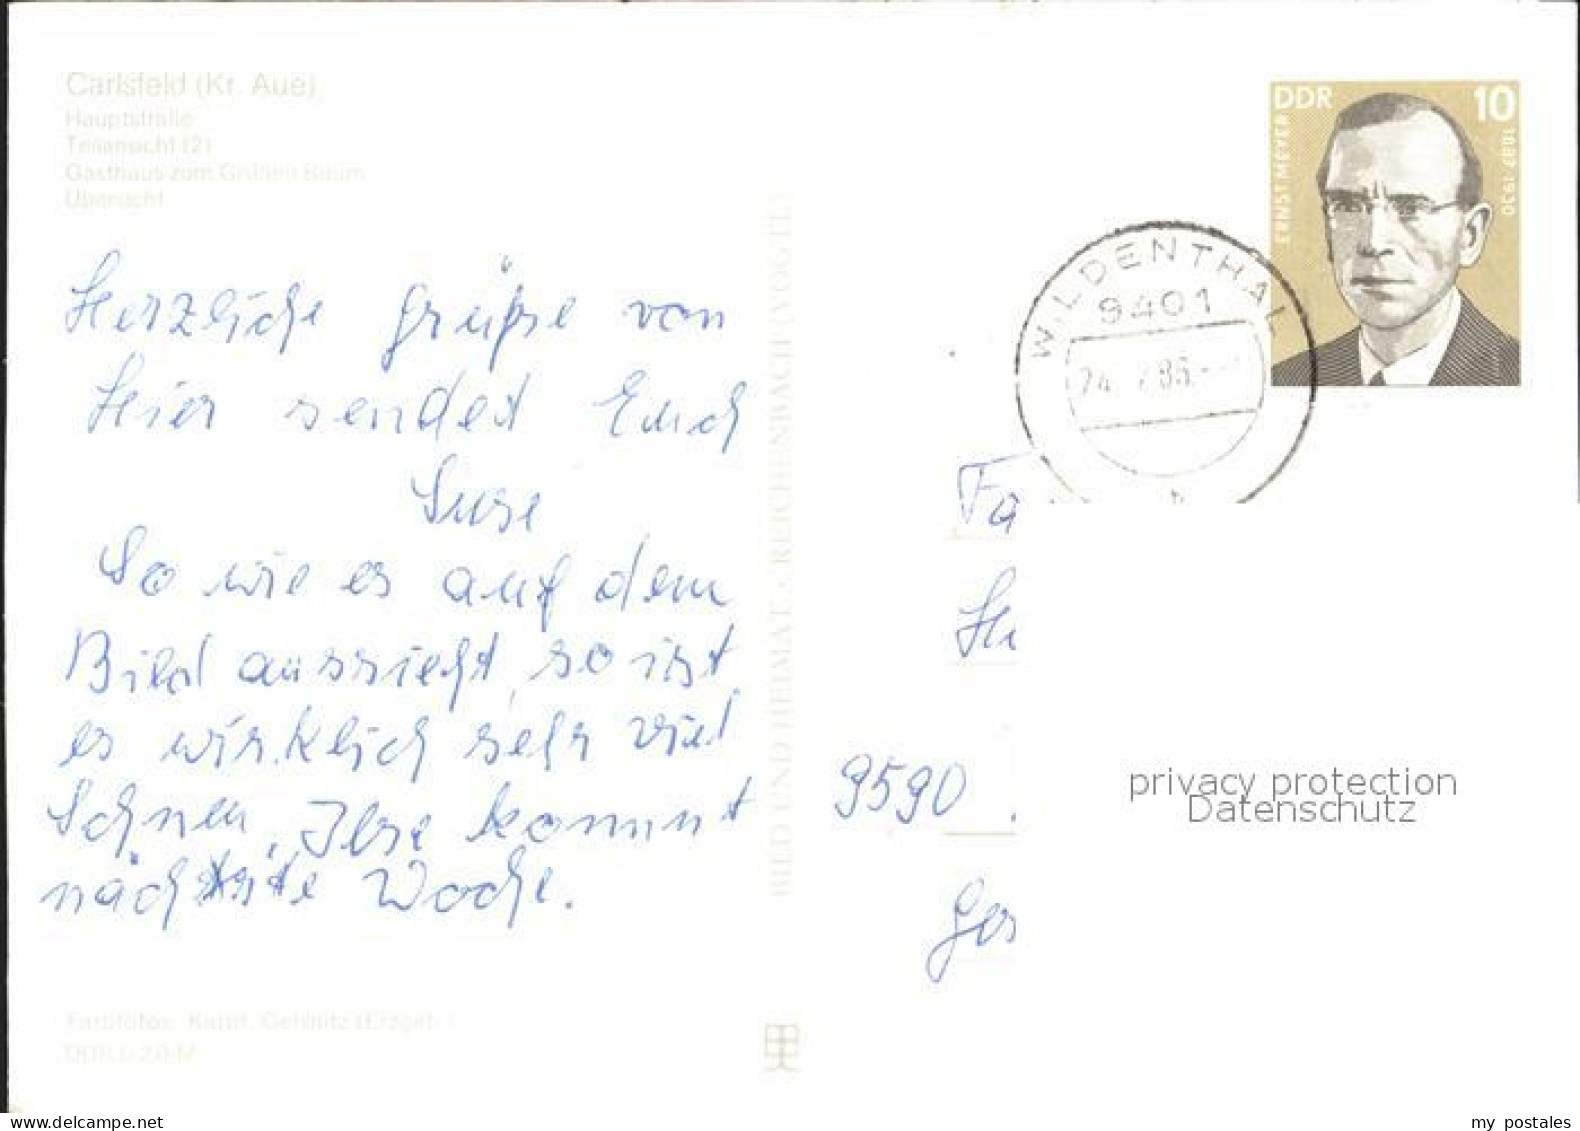 Carlsfeld (Kr. Aue)
Hauptstraße
Teilansicht (2)
Gasthaus zum Grünen Baum
Übersicht
Herzliche Grüße von
Hier sendet Euch
Suse
So wie es auf dem
Bild aussieht, so ist
es wirklich sehr viel
Schnee, Ilse kommt
nächste Woche.
Farbfotos: Kunst, Oelsnitz (Erzgeb.)
BILD UND HEIMAT · REICHENBACH (VOGTL)
DDR 10
ERNST MEYER
1887-1930
WILDENTHAL
9401
Fa
9590
Ger
privacy protection
Datenschutz
my postales
www.delcampe.net